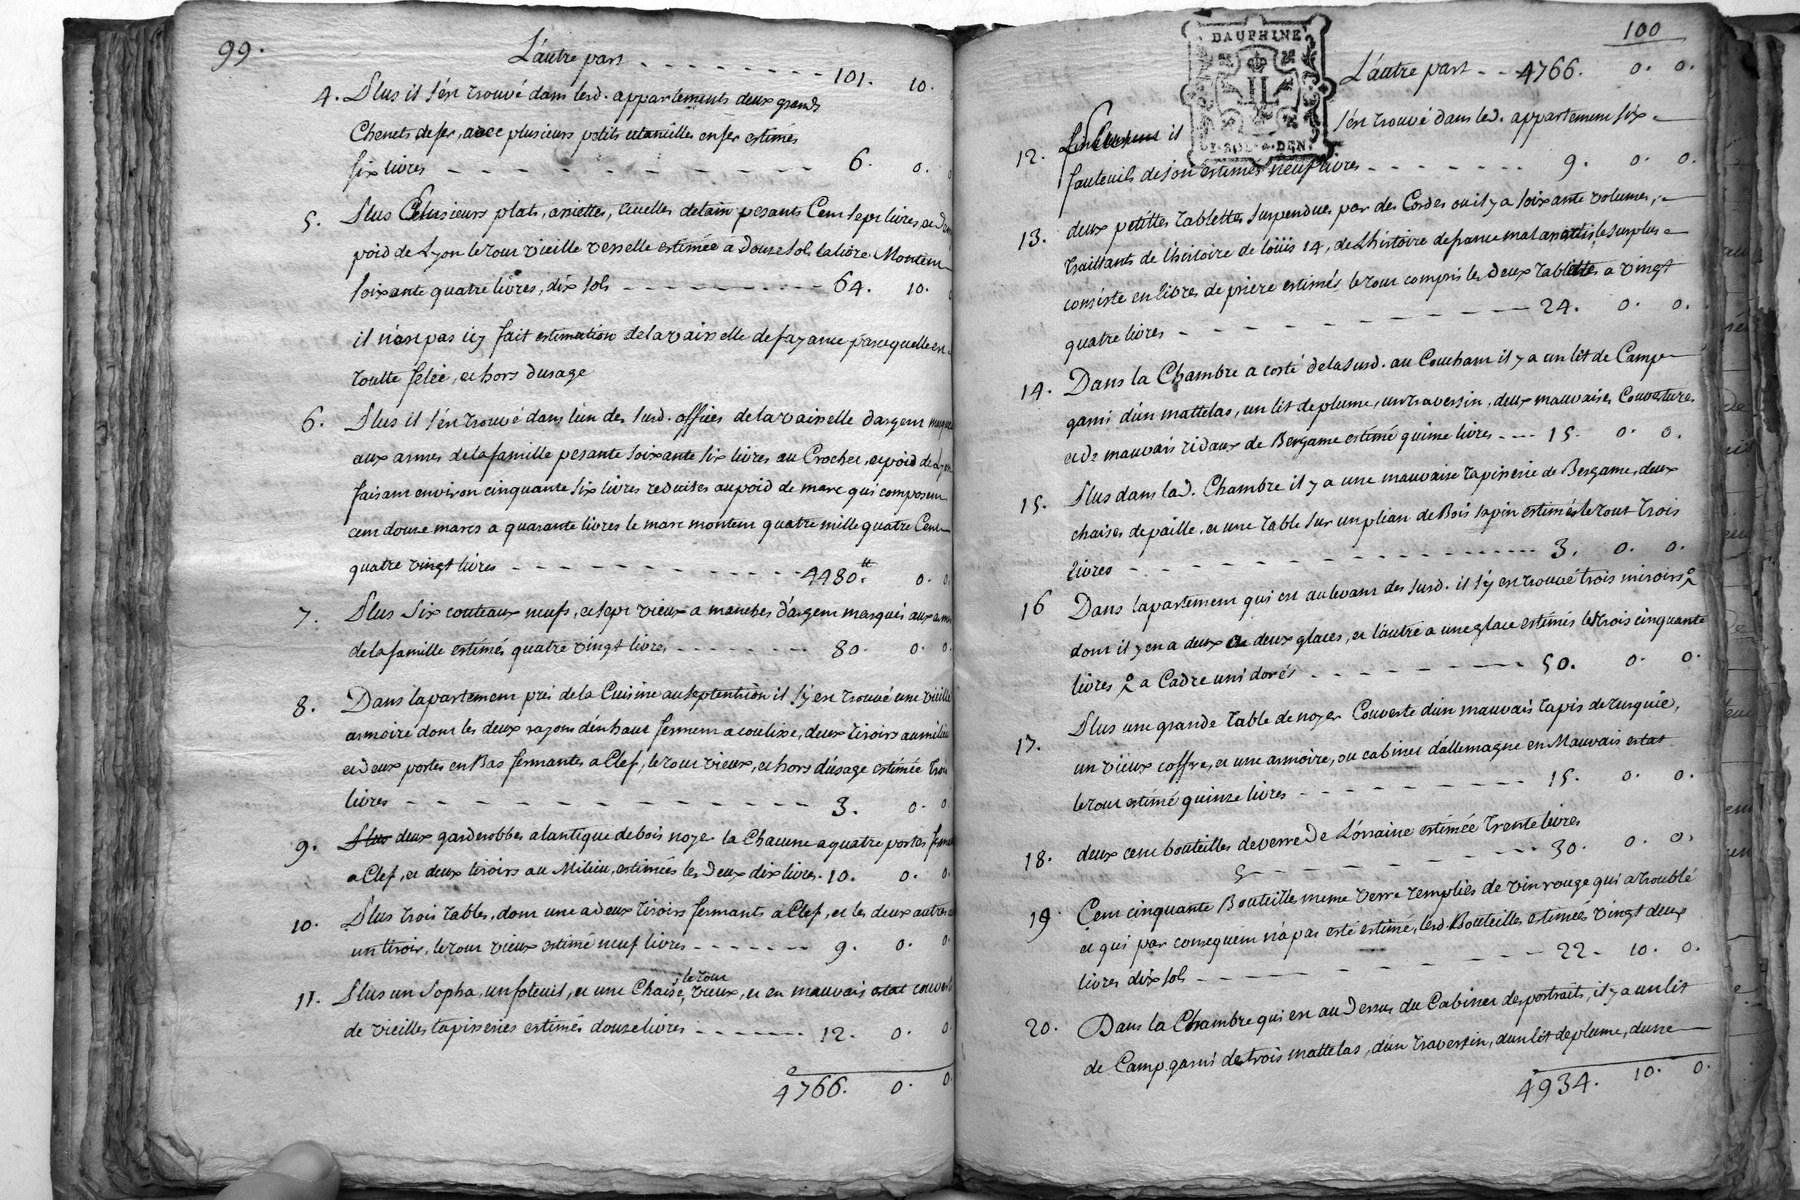 99.
L'autre part - - - - - - - - 101. 10.
4. Plus il s'en trouvé dans lesd. appartements deux grands
Chenets de fer, avec plusieurs petits utansilles en fer estimés
six livres - - - - - - - - - - - 6. 0.
5. Plus Plusieurs plats, assiettes, Ecuelles detain pesants Cent sept livres au
poid de Lyon le tout vieille vesselle estimée a Douze sols la livre Montent
soixante quatre livres, dix sols - - - - - - - - 64. 10.
il n'est pas icy fait estimation de la vaisselle de fayance parcequelle en
toutte felée, et hors dusage
6. Plus il s'en trouvé dans l'un des susd. offices de la vaisselle dargent marquée
aux armes de la famille pesante soixante six livres au Crochet, et poid de Lyon
faisant environ cinquante six livres reduites au poid de marc qui composent
cent douze marcs a quarante livres le marc montent quatre mille quatre Cent
quatre vingt livres - - - - - - - - - 4480.tt 0. 0
7. Plus six couteaux neufs, et sept vieux a manches d'argent marqués aux armes
de la famille estimés quatre vingt livres - - - - - - - 80. 0. 0
8. Dans lapartement près de la Cuisine au septentrion il s'y en trouvé une vieille
armoire dont les deux rayons d'en haut ferment a coulisse, deux tiroirs au milieu
et deux portes en Bas fermantes a Clef, le tout vieux, et hors d'usage estimée trois
livres - - - - - - - - - - - - 3. 0. 0
9. Plus deux garderobbes a lantique de bois noyer la Chacune a quatre portes ferm
a Clef, et deux tiroirs au Milieu, estimées les Deux dix livres. 10. 0. 0
10. Plus trois tables, dont une a deux tiroirs fermants à Clef, et les deux autres
un tiroir, le tout vieux estimé neuf livres - - - - - - - 9. 0. 0
11. Plus un sopha, un foteuil, et une Chaise, le tout vieux, et en mauvais estat couverts
de vieilles tapisseries estimés douze livres - - - - - - - 12. 0. 0
4766. 0. 0.
100
DAUPHINE
2. SOL. 4. DEN.
L'autre part - - 4766. 0. 0.
12. il s'en trouvé dans led. appartement six
fauteuils de jon estimés neuf livres - - - - - - - 9. 0. 0.
13. deux petittes tablettes suspendues par des Cordes ou il y a soixante volumes,
traittants de l'histoire de Loüis 14, de L'histoire de france mal assortis le surplus
consiste en livres de priere estimés le tout compris les deux tablettes a vingt
quatre livres - - - - - - - - - - - 24. 0. 0.
14. Dans la Chambre a costé de la susd. au Couchant il y a un lit de Camp
garni d'un mattelas, un lit de plume, un traversin, deux mauvaises Couvertures
et de mauvais ridaux de Bergame estimé quinze livres - - - 15. 0. 0.
15. Plus dans lad. Chambre il y a une mauvaise tapisserie de Bergame, deux
chaises de paille, et une table sur un pliant de Bois sapin estimés le tout trois
livres - - - - - - - - - - - 3. 0. 0.
16 Dans lapartement qui est au levant des susd. il s'y en trouvé trois miroirs
dont il y en a deux de deux glaces, et l'autre a une glace estimés les trois cinquante
livres a Cadre uni dorés - - - - - - - 50. 0. 0.
17. Plus une grande table de noyer Couverte d'un mauvais tapis de turquie,
un vieux coffre, et une armoire, ou cabinet d'allemagne en Mauvais estat
le tout estimé quinze livres - - - - - - - - 15. 0. 0.
18. deux cent bouteilles de verre De Lorraine estimée trente livres
- - - - - - - 30. 0. 0.
19. Cent cinquante Bouteilles meme verre remplies de vin rouge qui a troublé
et qui par consequent n'a pas esté estimé, lesd. Bouteilles estimées vingt deux
livres dix sols - - - - - - - - - 22. 10. 0.
20. Dans la Chambre qui est au Dessus du Cabinet de portraits, il y a un lit
de Camp garni de trois mattelas, d'un traversin, d'un lit de plume, d'une
4934. 10. 0.